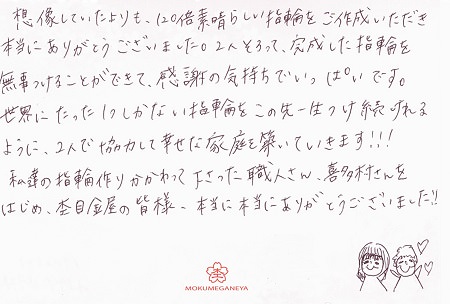 想像していたよりも、120倍素晴らしい指輪をご作成いただき
本当にありがとうございました。2人そろって、完成した指輪を
無事つけることができて、感謝の気持ちでいっぱいです。
世界にたった1つしかない指輪をこの先一生つけ続けれる
ように、2人で協力して幸せな家庭を築いていきます!!!
私達の指輪作りかかわって下さった職人さん、喜多村さんを
はじめ、杢目金屋の皆様、本当に本当にありがとうございました!!
杢
MOKUMEGANEYA